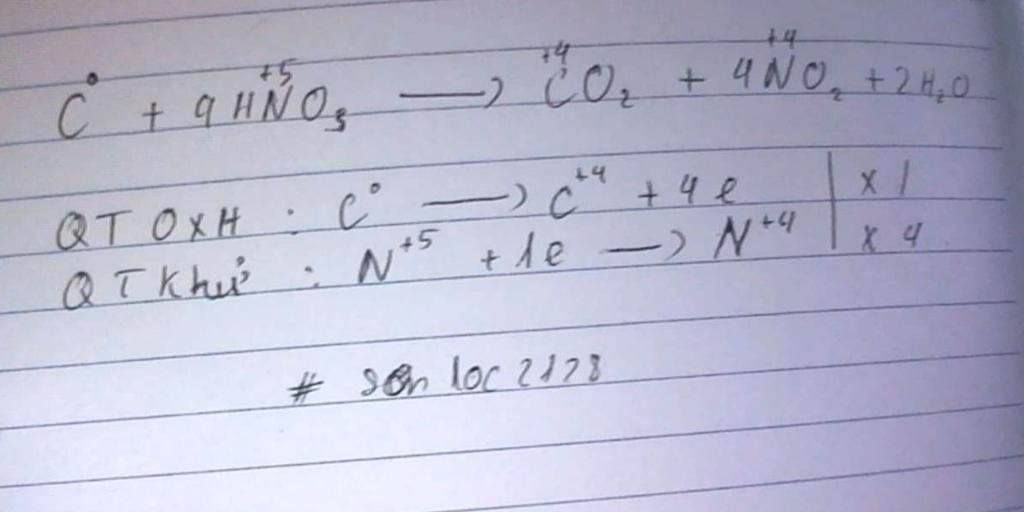 C⁰ + 4HN⁺⁵O₃ ⟶ C⁺⁴O₂ + 4N⁺⁴O₂ + 2H₂O
QT OXH : C⁰ ⟶ C⁺⁴ + 4e | x 1
QT Khử : N⁺⁵ + 1e ⟶ N⁺⁴ | x 4
# sơn loc 2128